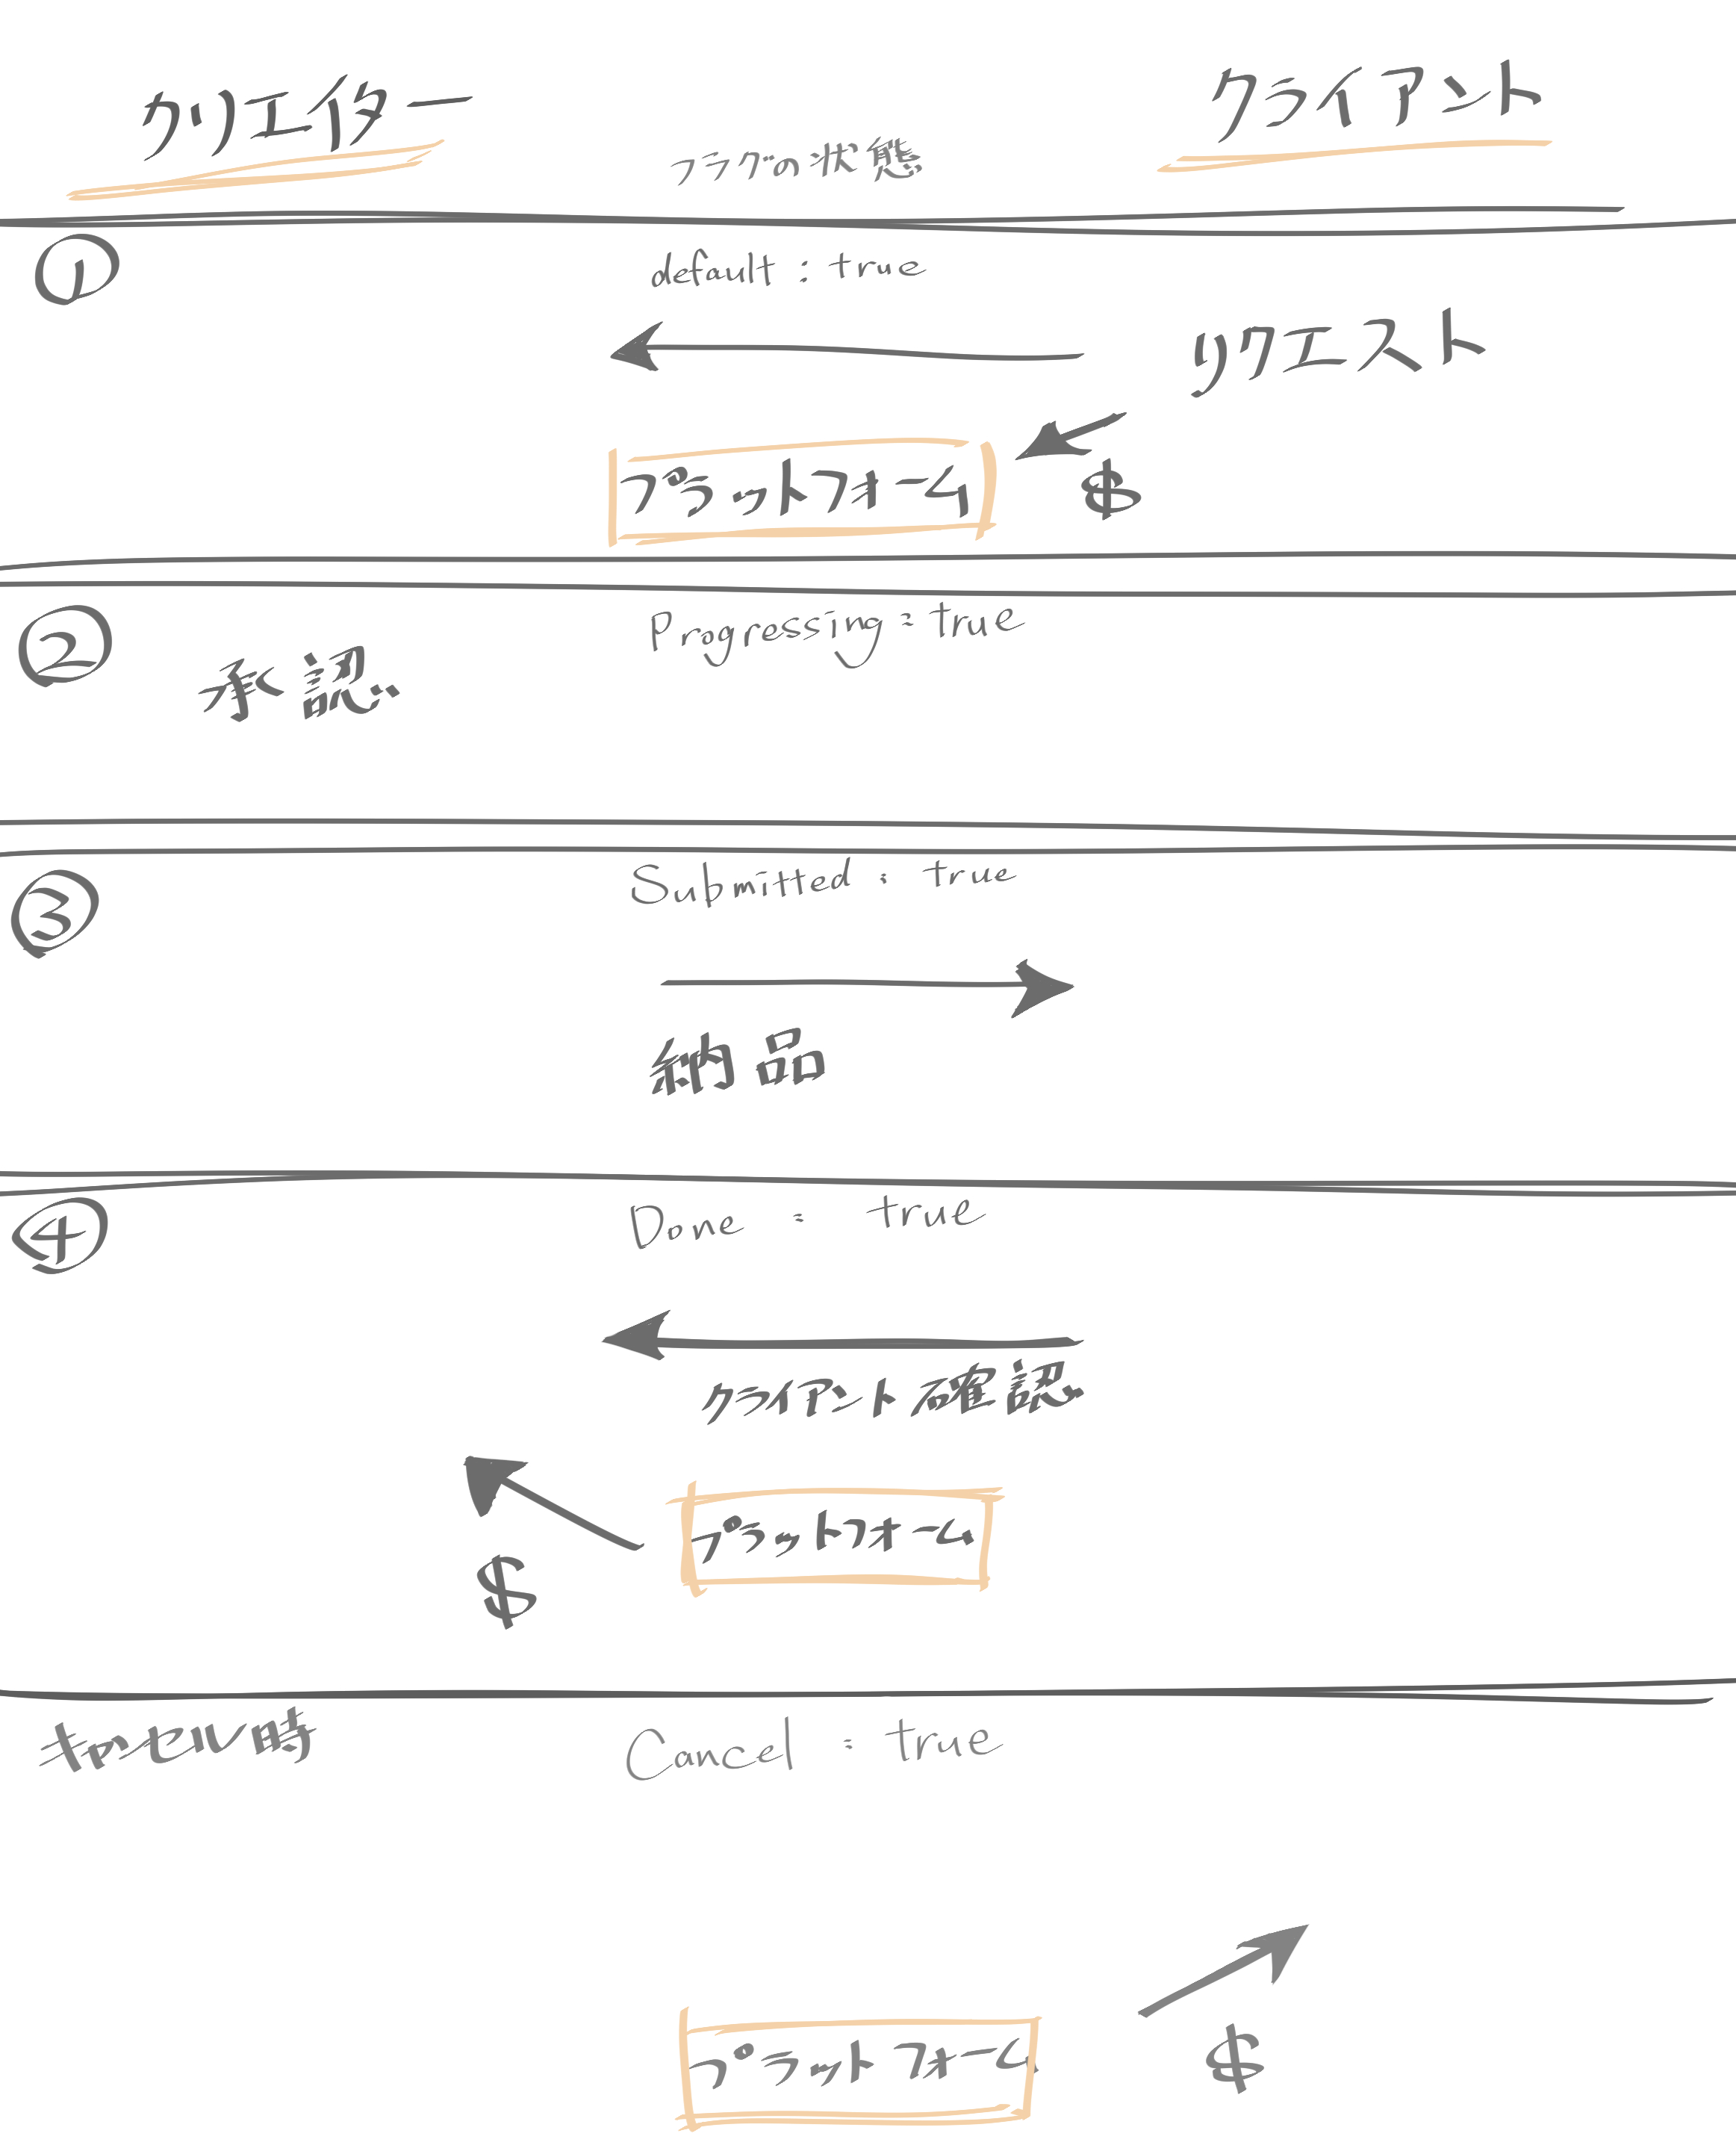 クリエイター
フラグの状態
クライアント
①
default : true
リクエスト
プラットフォーム
$
②
Progressing : true
承認
③
Submitted : true
納品
④
Done : true
クライアント確認
プラットフォーム
$
キャンセル時
Cancel : true
プラットフォーム
$